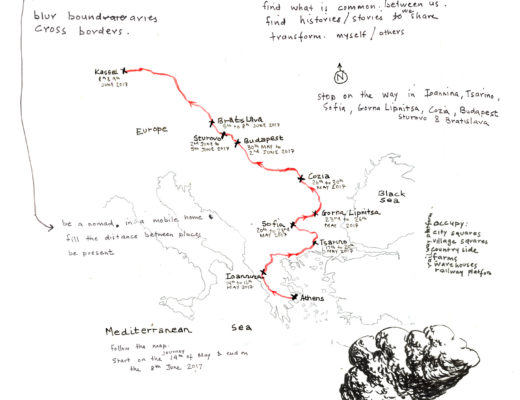 find what is common. between us.
find histories/stories to we share
transform. myself / others
blur boundaries
cross borders.
N
stop on the way in Ioannina, Tsarino,
Sofia, Gorna Lipnitsa, Cozia, Budapest
Sturovo & Bratislava
Kassel
8th & 9th
JUNE 2017
Bratislava
5th to 8th JUNE 2017
Europe
Sturovo
2nd JUNE to
5th JUNE 2017
Budapest
30th MAY to
2nd JUNE 2017
Cozia
26th to 30th
MAY 2017
Black
sea
Gorna Lipnitsa
23rd to 26th
MAY 2017
Sofia
20th to 23rd
MAY 2017
Tsarino
17th to 20th
MAY 2017
Ioannina
MAY 2017
Athens
be a nomad. in a mobile home &
fill the distance between places
be present
railway platform
occupy:
city squares
village squares
country side
farms
warehouses
railway platform
Mediterranean Sea
Follow the map.
Start on the journey 14th of May & end on
the 8th June 2017